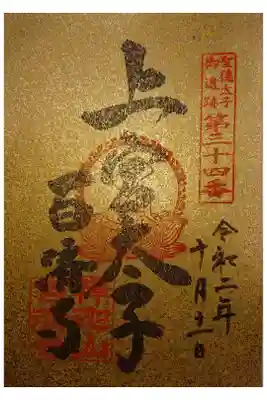 聖徳太子
御遺跡 第二十四番
上宮太子
百済寺
令和二年
十月十一日